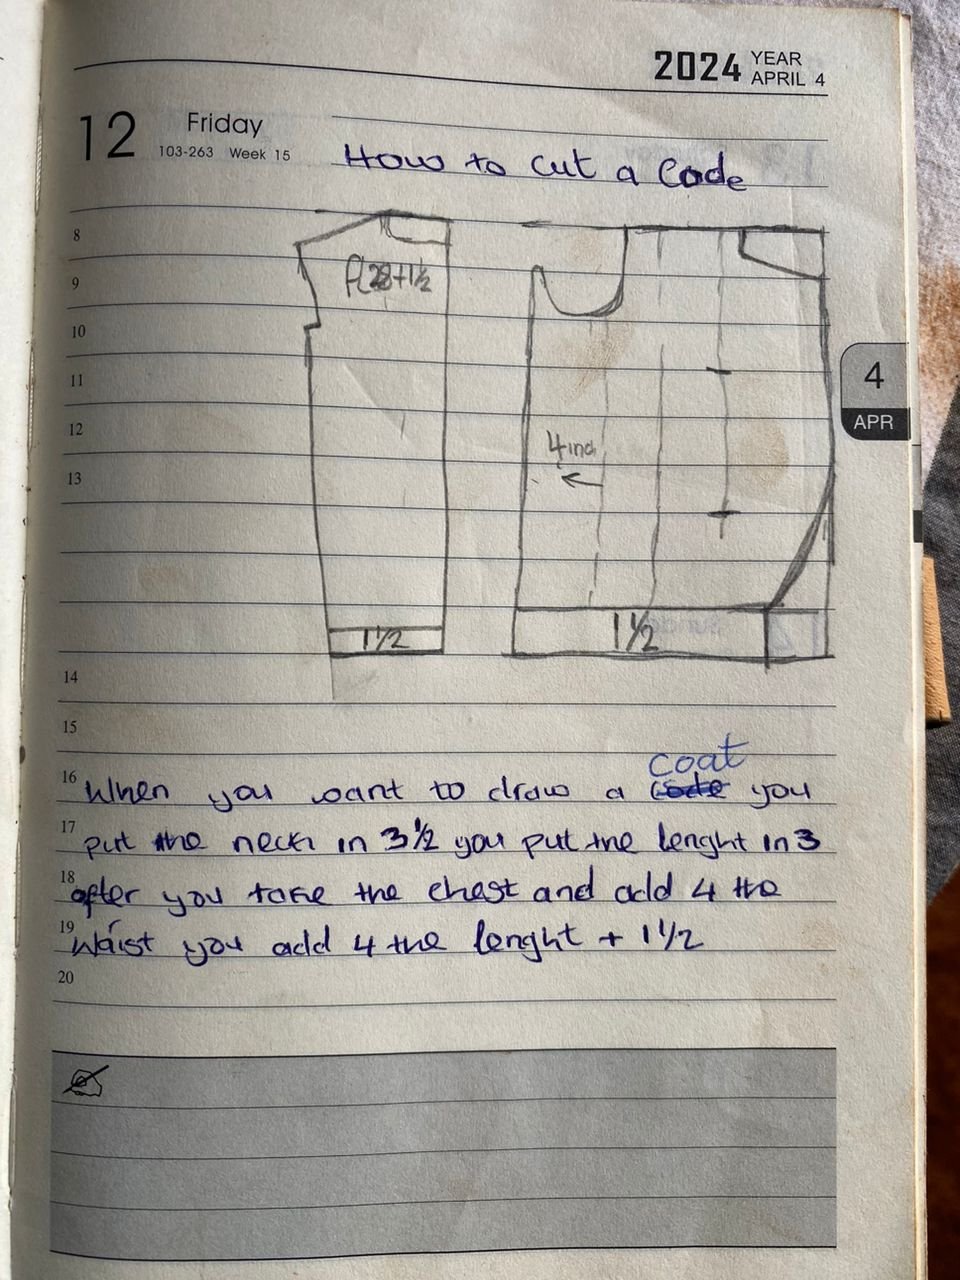 2024 YEAR
APRIL 4
12 Friday
103-263 Week 15
How to cut a Code
8
9
10
11
12
13
14
15
16
17
18
19
20
FL28+1½
4ind
1½
1½
4
APR
coat
When you want to draw a code you
put the neck in 3½ you put the lenght in 3
after you take the chest and add 4 the
Waist you add 4 the lenght + 1½